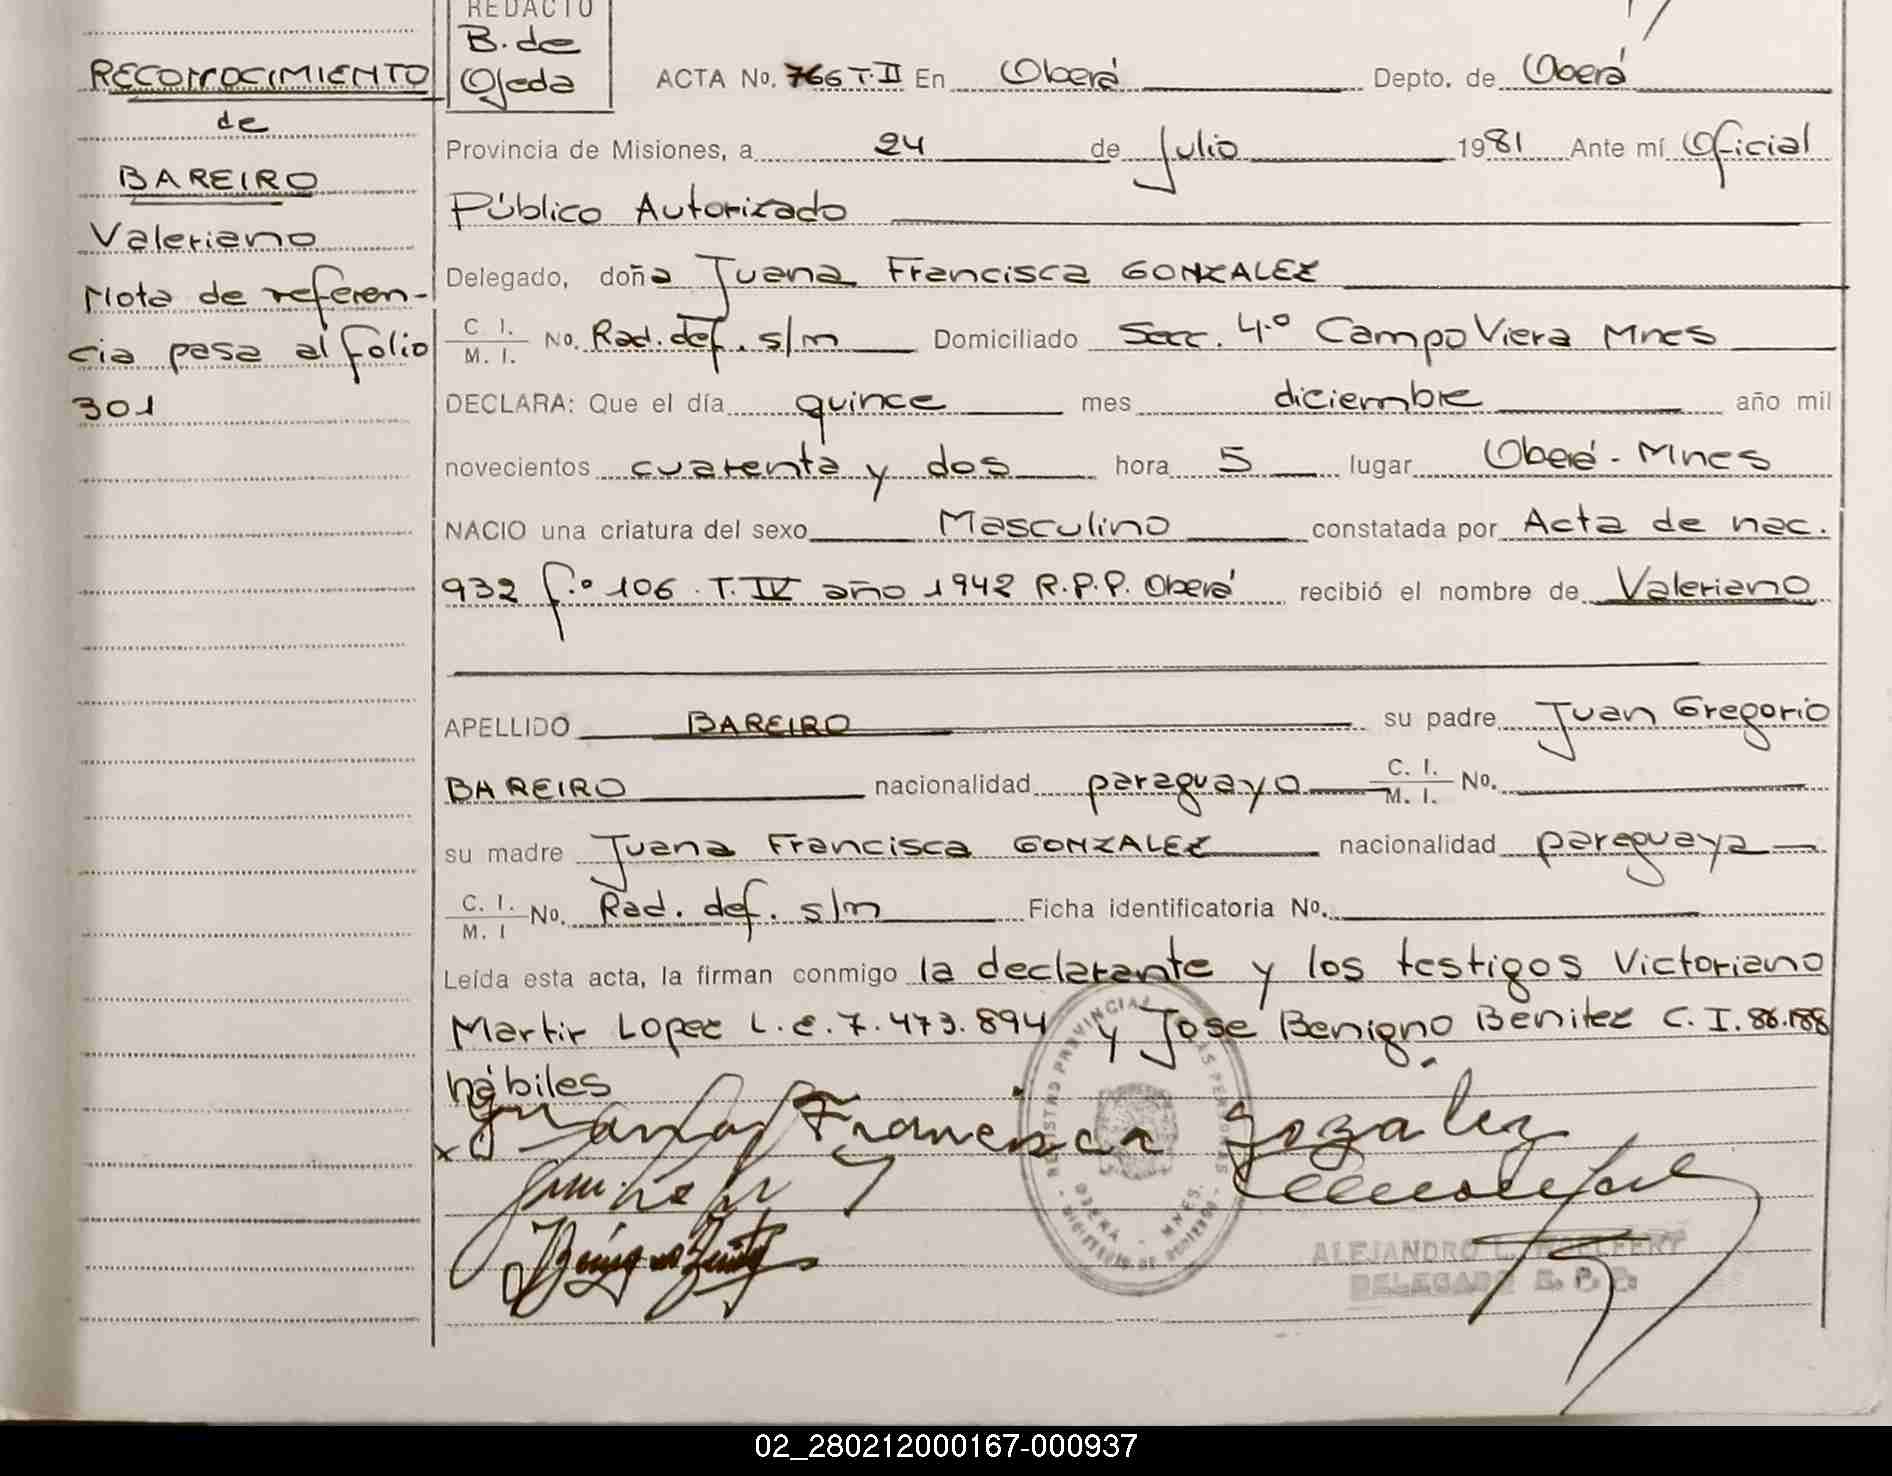 RECONOCIMIENTO
de
BAREIRO
Valeriano
Nota de referen-
cia pasa al folio
301
REDACTO
B. de
Ojeda
ACTA No. 766 T. II En Oberá Depto. de Oberá
Provincia de Misiones, a 24 de Julio 1981 Ante mí Oficial
Público Autorizado
Delegado, doña Juana Francisca GONZALEZ
C. I. / M. I. No. Rad. def. s/n Domiciliado Secc. 4.º Campo Viera Mnes
DECLARA: Que el día quince mes diciembre año mil
novecientos cuarenta y dos hora 5 lugar Oberá - Mnes
NACIO una criatura del sexo Masculino constatada por Acta de nac.
932 f.º 106 . T. IV año 1942 R.P.P. Oberá recibió el nombre de Valeriano
APELLIDO BAREIRO su padre Juan Gregorio
BAREIRO nacionalidad paraguayo C. I. / M. I. No.
su madre Juana Francisca GONZALEZ nacionalidad paraguaya
C. I. / M. I No. Rad. def. s/n Ficha identificatoria No.
Leída esta acta, la firman conmigo la declarante y los testigos Victoriano
Martir Lopez L.E. 7.473.894 y Jose Benigno Benitez C.I. 86.188
hábiles
Juana Francisca Gozalez
REGISTRO PROVINCIAL DE LAS PERSONAS
OBERA - MNES.
MINISTERIO DE GOBIERNO
Benigno Benitez
ALEJANDRO L.
DELEGADO R. P. P.
02_280212000167-000937